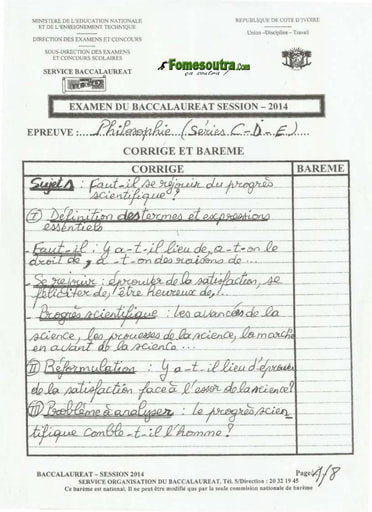 MINISTERE DE L'EDUCATION NATIONALE
ET DE L'ENSEIGNEMENT TECHNIQUE
DIRECTION DES EXAMENS ET CONCOURS
SOUS-DIRECTION DES EXAMENS
ET CONCOURS SCOLAIRES
SERVICE BACCALAUREAT
REPUBLIQUE DE COTE D'IVOIRE
Union - Discipline - Travail
Fomesoutra.com
ça soutra !
EXAMEN DU BACCALAUREAT SESSION – 2014
EPREUVE : Philosophie (Séries C-D-E)
CORRIGE ET BAREME
CORRIGE BAREME
Sujet 1 : Faut-il se réjouir du progrès
scientifique ?
I Définition des termes et expressions
essentiels
- Faut-il : Y a-t-il lieu de, a-t-on le
droit de, a-t-on des raisons de ...
- Se réjouir : éprouver de la satisfaction, se
féliciter de, être heureux de, ...
- Progrès scientifique : les avancées de la
science, les prouesses de la science, la marche
en avant de la science ...
II Réformulation : Y a-t-il lieu d'éprouver
de la satisfaction face à l'essor de la science ?
III Problème à analyser : le progrès scien
tifique comble-t-il l'homme ?
BACCALAUREAT – SESSION 2014 Page 1/8
SERVICE ORGANISATION DU BACCALAUREAT, Tél. S/Direction : 20 32 19 45
Ce barème est national. Il ne peut être modifié que par la seule commision nationale de barème